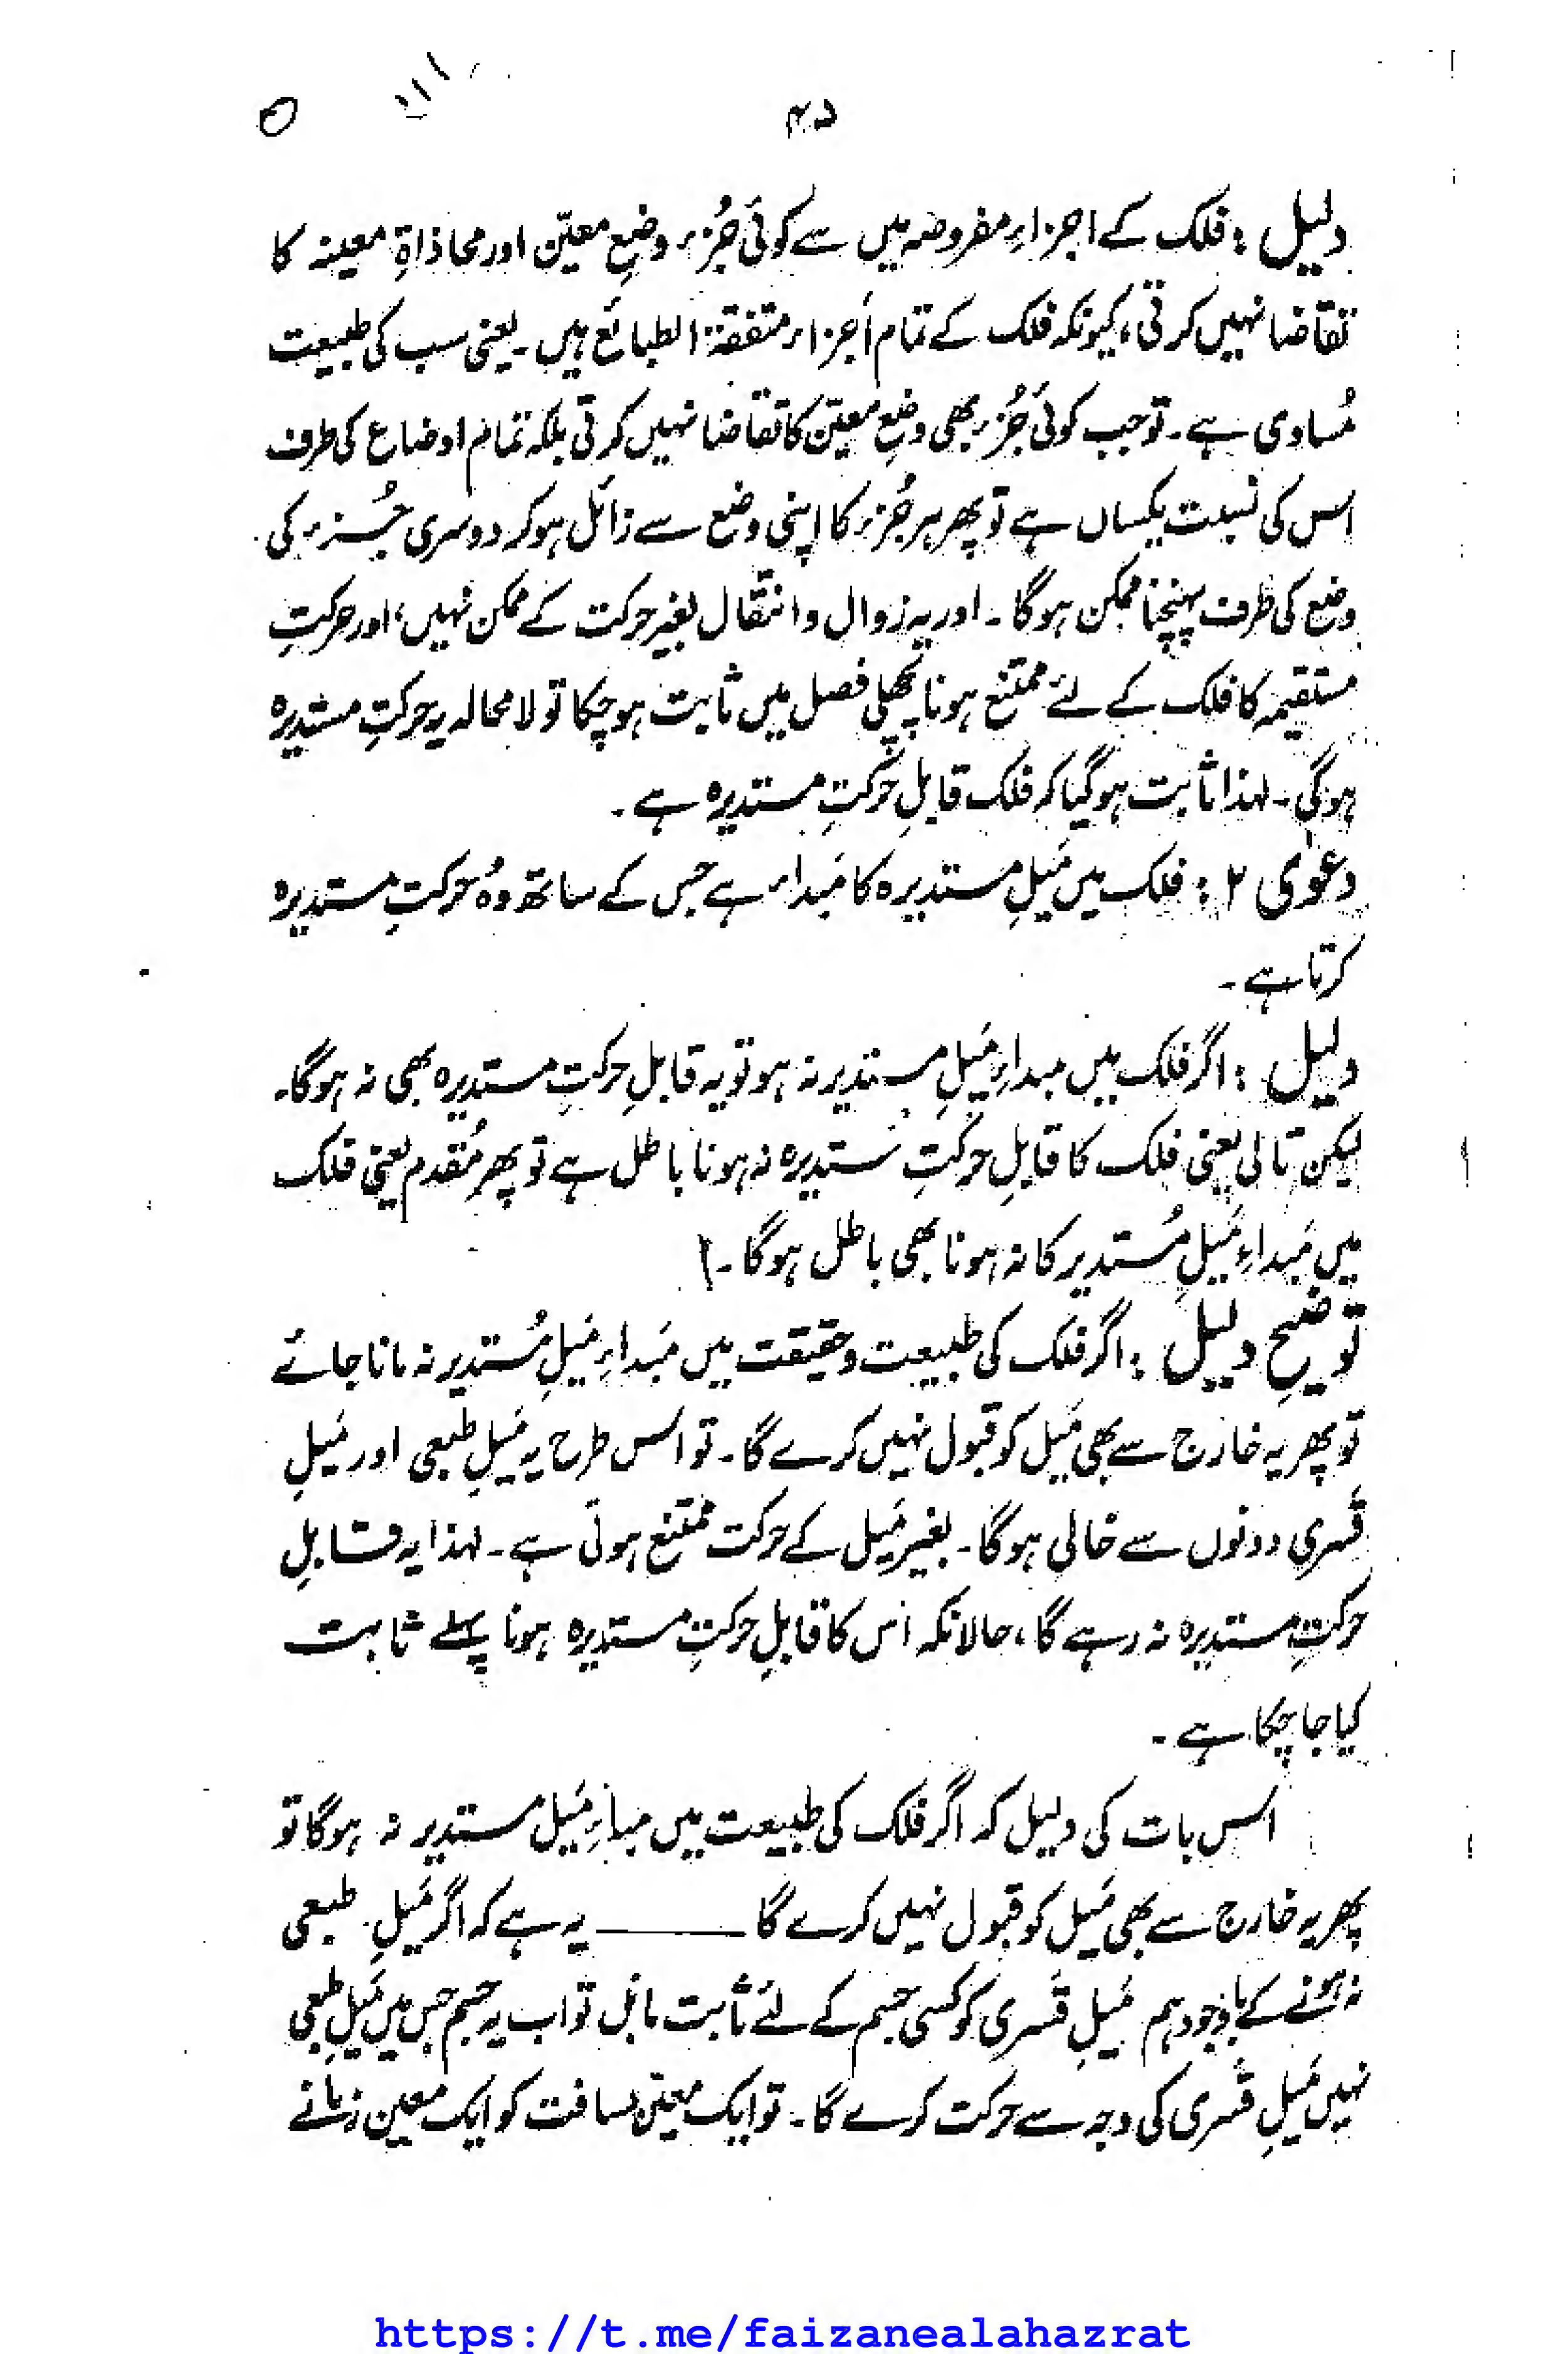 ۴۵
دلیل : فلک کے اجزاءِ مفروضہ میں سے کوئی جُزء وضعِ معیّن اور محاذاۃِ معینہ کا
تقاضا نہیں کرتی، کیونکہ فلک کے تمام اَجزاء متفقۃ الطبائع ہیں۔ یعنی سب کی طبیعت
مُساوی ہے۔ تو جب کوئی جُزء بھی وضعِ معیّن کا تقاضا نہیں کرتی بلکہ تمام اوضاع کی طرف
اس کی نسبت یکساں ہے تو پھر ہر جُزء کا اپنی وضع سے زائل ہو کر دوسری جُزء کی
وضع کی طرف پہنچنا ممکن ہوگا۔ اور یہ زوال و انتقال بغیر حرکت کے ممکن نہیں، اور حرکتِ
مستقیمہ کا فلک کے لئے ممتنع ہونا پچھلی فصل میں ثابت ہو چکا تو لامحالہ یہ حرکتِ مستدیرہ
ہوگی۔ لہذا ثابت ہوگیا کہ فلک قابلِ حرکتِ مستدیرہ ہے۔
دعوٰی ۲ : فلک میں مَیلِ مستدیرہ کا مَبداء ہے جس کے ساتھ وہُ حرکتِ مستدیرہ
کرتا ہے۔
دلیل : اگر فلک میں مبداءِ مَیلِ مستدیر نہ ہو تو یہ قابلِ حرکتِ مستدیرہ بھی نہ ہوگا۔
لیکن تالی یعنی فلک کا قابلِ حرکتِ ستدیرہ نہ ہونا باطل ہے تو پھر مُقدم یعنی فلک
میں مَبداءِ مَیلِ مُستدیر کا نہ ہونا بھی باطل ہوگا۔
توضیحِ دلیل : اگر فلک کی طبیعت و حقیقت میں مَبداءِ مَیلِ مُستدیر نہ مانا جائے
تو پھر یہ خارج سے بھی مَیل کو قبول نہیں کرے گا۔ تو اس طرح یہ مَیلِ طبعی اور مَیلِ
قَسری دونوں سے خالی ہوگا۔ بغیر مَیل کے حرکت ممتنع ہوتی ہے۔ لہذا یہ قابلِ
حرکتِ مستدیرہ نہ رہے گا، حالانکہ اس کا قابلِ حرکتِ مستدیرہ ہونا پہلے ثابت
کیا جا چکا ہے۔
اس بات کی دلیل کہ اگر فلک کی طبیعت میں مَیل مستدیر نہ ہوگا تو
پھر یہ خارج سے بھی مَیل کو قبول نہیں کرے گا ــــــــ یہ ہے کہ اگر مَیلِ طبعی
نہ ہونے کے باوجود ہم مَیلِ قَسری کو کسی جسم کے لئے ثابت مانیں تو اب یہ جسم جس میں مَیلِ طبعی
نہیں مَیلِ قَسری کی وجہ سے حرکت کرے گا۔ تو ایک معیّن مسافت کو ایک معین زمانے
https://t.me/faizanealahazrat